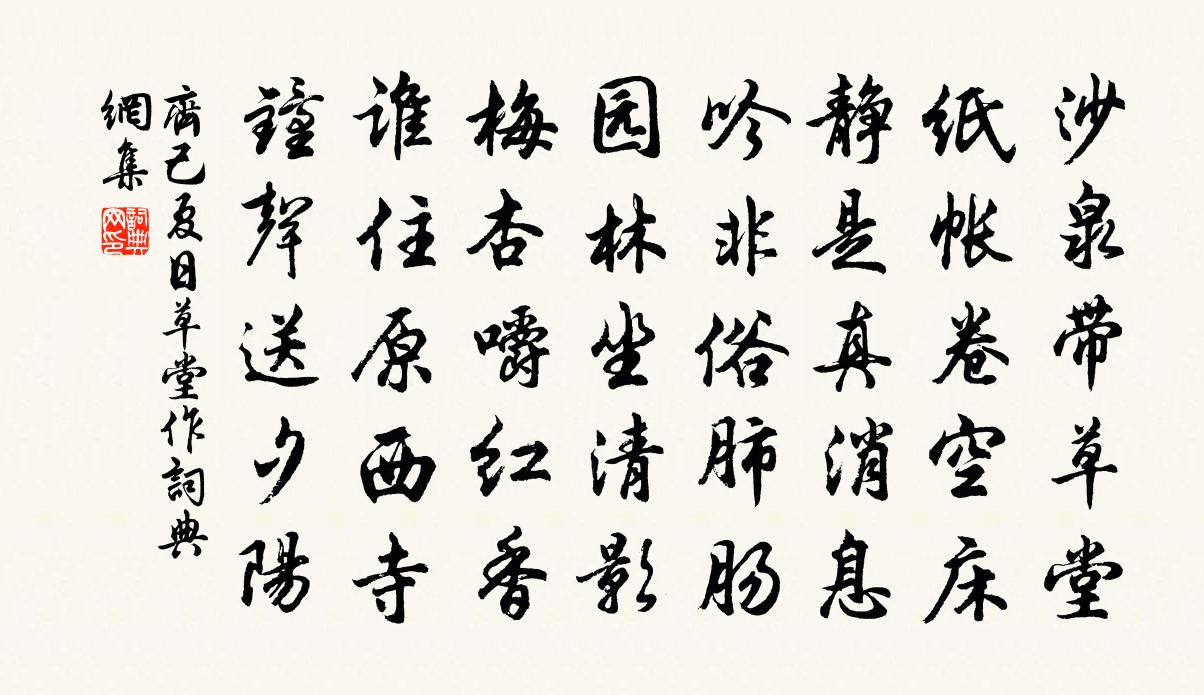 沙泉带草堂
纸帐卷空床
静是真消息
吟非俗肺肠
园林坐清影
梅杏嚼红香
谁住原西寺
鐘聲送夕陽
齊己夏日草堂作詞典
網集
詞典
网印